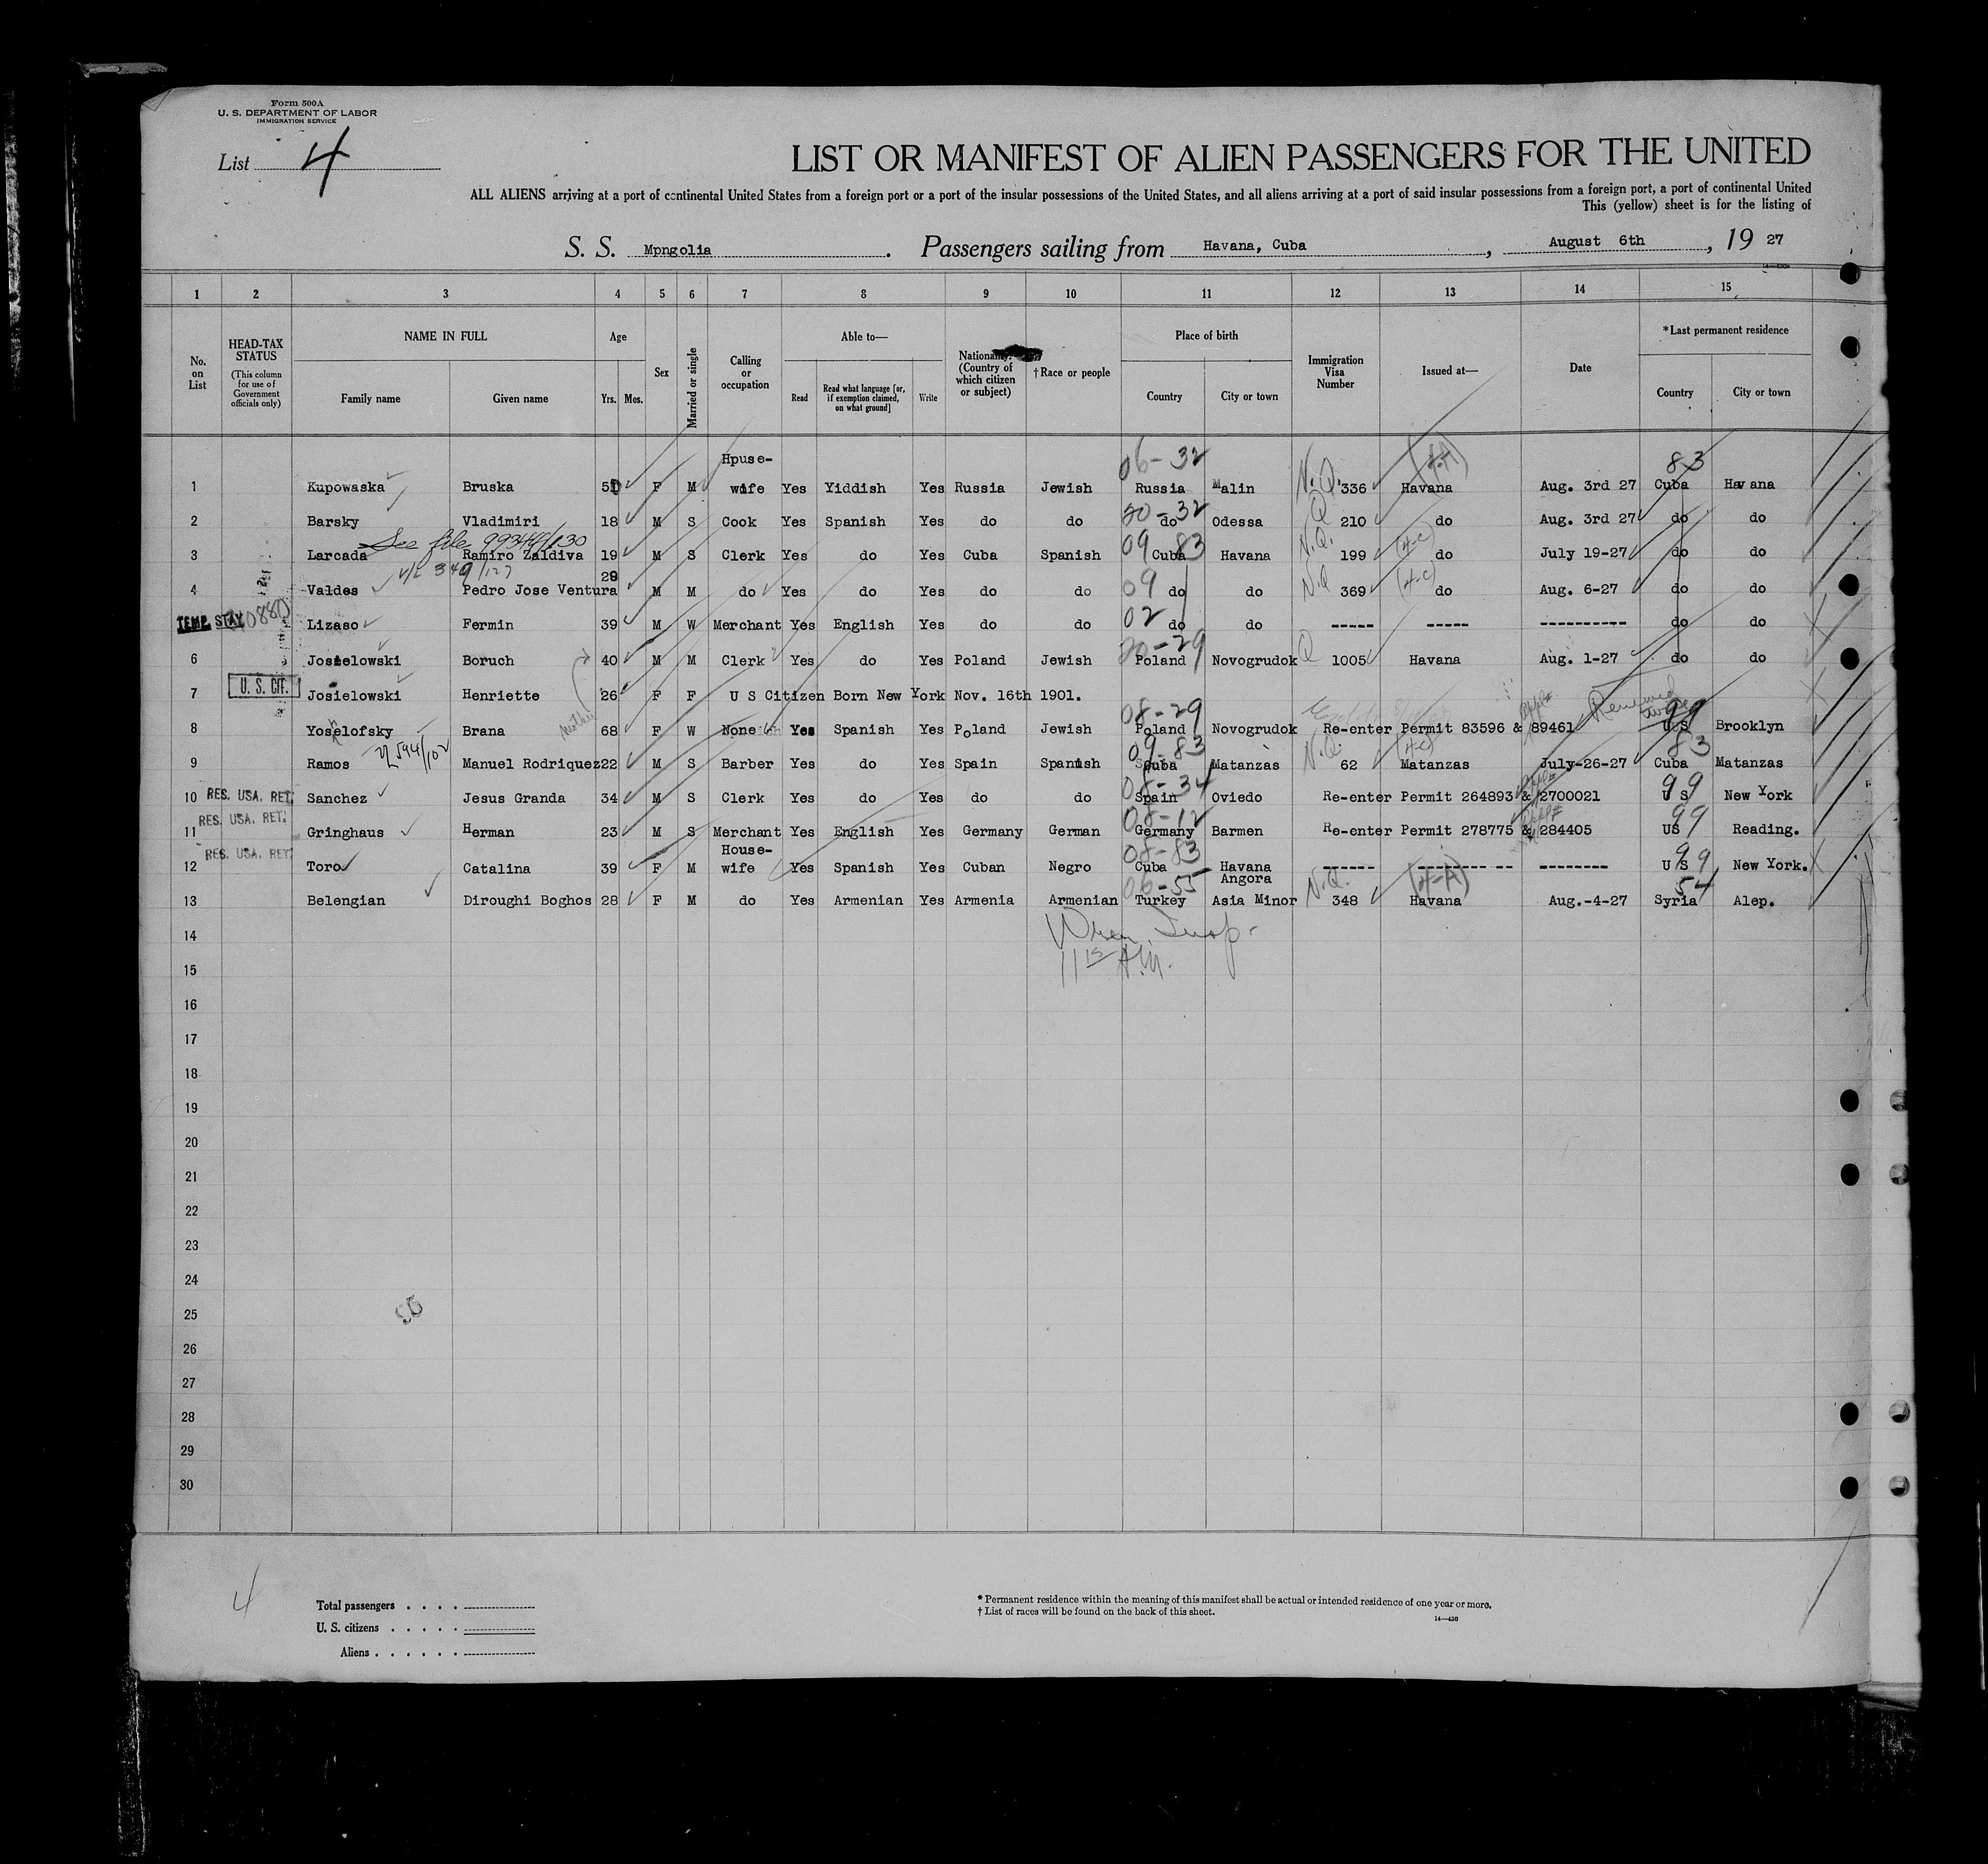 Form 500A
U. S. DEPARTMENT OF LABOR
IMMIGRATION SERVICE
List 4
LIST OR MANIFEST OF ALIEN PASSENGERS FOR THE UNITED
ALL ALIENS arriving at a port of continental United States from a foreign port or a port of the insular possessions of the United States, and all aliens arriving at a port of said insular possessions from a foreign port, a port of continental United
This (yellow) sheet is for the listing of
S. S. Mpngolia . Passengers sailing from Havana, Cuba , August 6th , 19 27
1 2 3 4 5 6 7 8 9 10 11 12 13 14 15
No. on List
HEAD-TAX STATUS (This column for use of Government officials only)
NAME IN FULL
Family name Given name
Age
Yrs. Mos.
Sex
Married or single
Calling or occupation
Able to—
Read Read what language [or, if exemption claimed, on what ground] Write
Nationality. (Country of which citizen or subject)
†Race or people
Place of birth
Country City or town
Immigration Visa Number
Issued at—
Date
*Last permanent residence
Country City or town
Hpuse- 06-32 83
1 Kupowaska Bruska F M wife Yes Yiddish Yes Russia Jewish Russia Malin N.Q. 336 Havana Aug. 3rd 27 Cuba Havana
20-32
2 Barsky Vladimiri 18 M S Cook Yes Spanish Yes do do do Odessa Q 210 do Aug. 3rd 27 do do
See file 99349/130
3 Larcada Ramiro Zaldiva 19 M S Clerk Yes do Yes Cuba Spanish 09 Cuba 83 Havana N.Q. 199 (4-c) do July 19-27 do do
4 Valdes Pedro Jose Ventura 29 M M do Yes do Yes do do 09 do do N.Q 369 (4-c) do Aug. 6-27 do do
TEMP. STAY Lizaso Fermin 39 M W Merchant Yes English Yes do do 02 do do ----- ----- ---------- do do
20-29
6 Josielowski Boruch 40 M M Clerk Yes do Yes Poland Jewish Poland Novogrudok Q 1005 Havana Aug. 1-27 do do
7 U. S. CIT. Josielowski Henriette 26 F F U S Citizen Born New York Nov. 16th 1901.
08-29 Renewed 99
8 Yoselofsky Brana 68 F W None Yes Spanish Yes Poland Jewish Poland Novogrudok Re-enter Permit 83596 & 89461 U S Brooklyn
09-83 83
9 Ramos Manuel Rodriquez 22 M S Barber Yes do Yes Spain Spanish Cuba Matanzas N.Q. 62 (4-c) Matanzas July-26-27 Cuba Matanzas
08-34 99
10 RES. USA. RET. Sanchez Jesus Granda 34 M S Clerk Yes do Yes do do Spain Oviedo Re-enter Permit 264893 & 2700021 U S New York
RES. USA. RET. 08-12 99
11 Gringhaus Herman 23 M S Merchant Yes English Yes Germany German Germany Barmen Re-enter Permit 278775 & 284405 US Reading.
RES. USA. RET. House- 08-83 99
12 Toro Catalina 39 F M wife Yes Spanish Yes Cuban Negro Cuba Havana ------ ----------- -------- U S New York.
06-55 Angora 54
13 Belengian Diroughi Boghos 28 F M do Yes Armenian Yes Armenia Armenian Turkey Asia Minor N.Q. 348 (4-A) Havana Aug.-4-27 Syria Alep.
14
15
16
17
18
19
20
21
22
23
24
25
26
27
28
29
30
4
Total passengers . . . .
U. S. citizens . . . . .
Aliens . . . . . .
* Permanent residence within the meaning of this manifest shall be actual or intended residence of one year or more.
† List of races will be found on the back of this sheet.
14—430